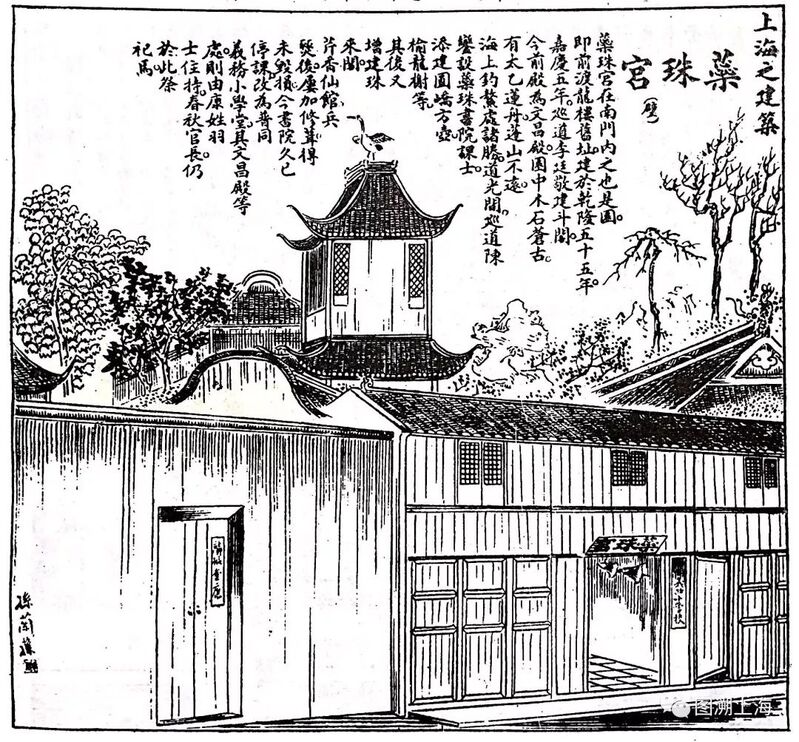 上海之建築
蘂珠宮
璧
蘂珠宮在南門內之也是園。
即前渡龍樓舊址。建於乾隆五十五年。
嘉慶五年。巡道李廷敬建斗閣。
今前殿為文昌殿。園中木石蒼古。
有太乙蓮丹。蓬山不遠。
海上釣鰲處諸勝。道光間。巡道陳
鑾設蘂珠書院課士。
添建圓嶠方壺。
榆龍榭等。
其後又
增建珠
來閣。
芹香仙館。兵
燹後。屢加修葺。得
未毀損。今書院久已
停課。改為普同
義務小學堂。其文昌殿等
處。則由康姓羽
士住持。春秋官長仍
於此祭
祀焉。
蘂珠宮
孫蘭蓀
图溯上海